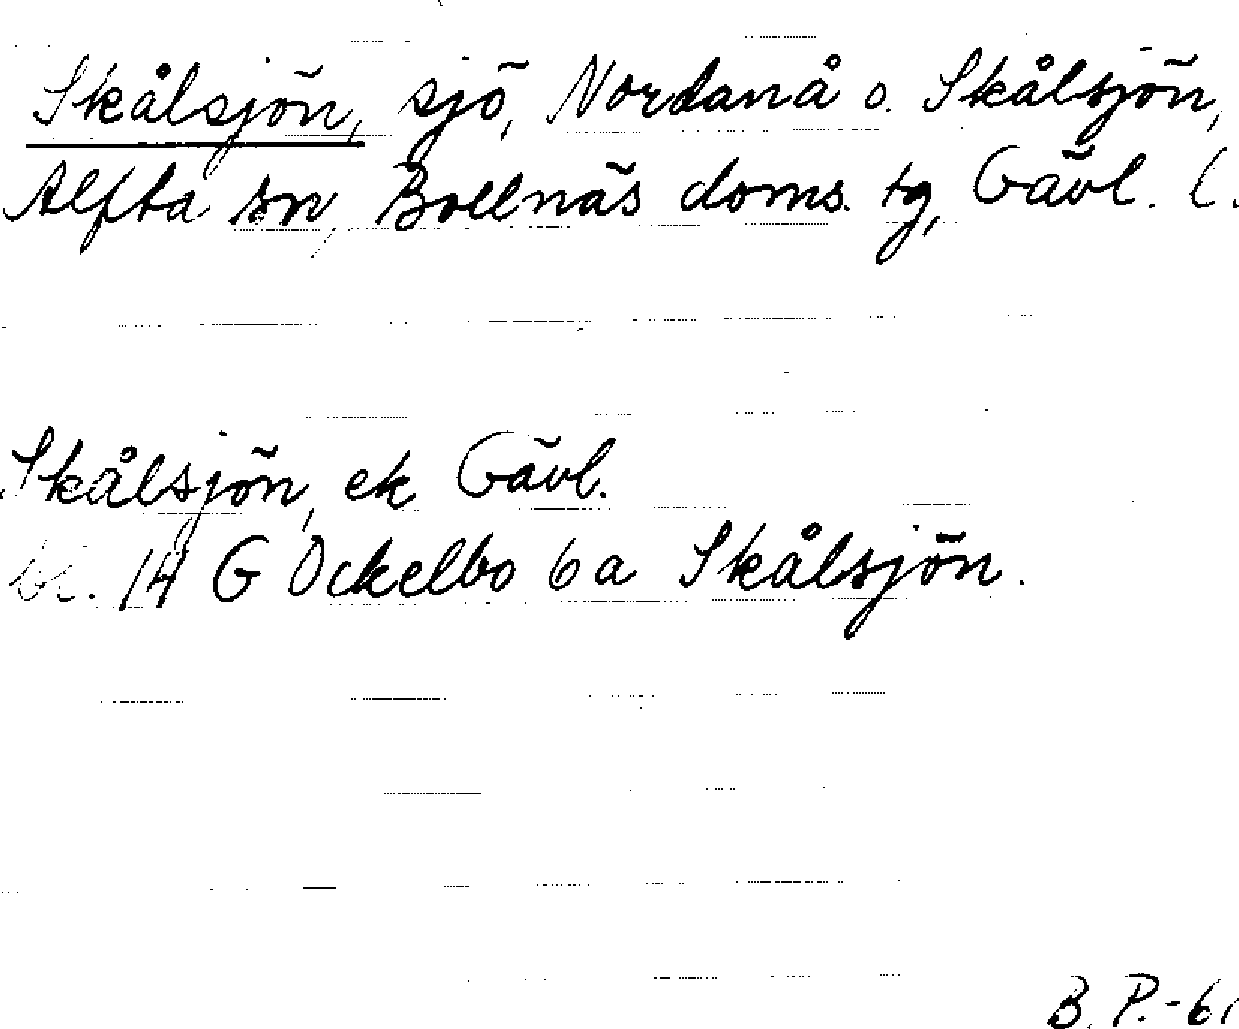 Skålsjön, sjö, Nordanå o. Skålsjön,
Alfta sn, Bollnäs doms. tg, Gävl. l.
Skålsjön, ek Gävl.
bl. 14 G Ockelbo 6 a Skålsjön.
B. P. - 61